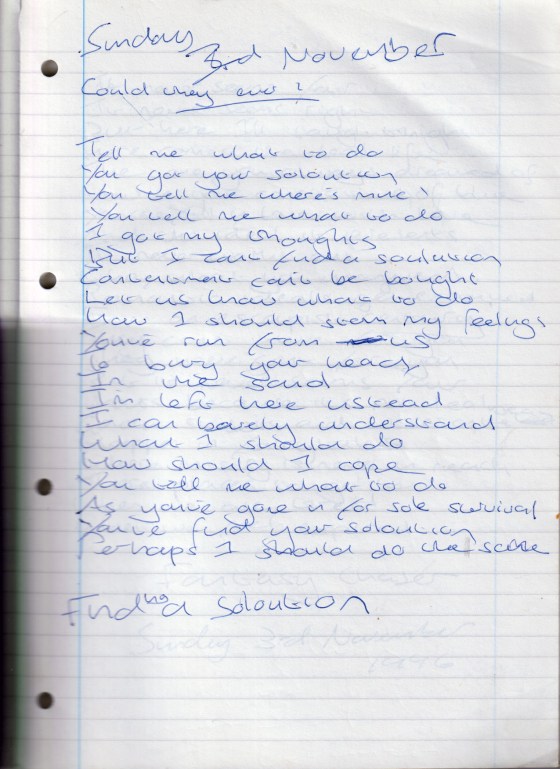 Sunday 3rd November
Could they ever?
Tell me what to do
You got your soloution
You tell me where's mine!
You tell me what to do
I got my thoughts
But I can't find a soulution
Contentment can't be bought
Let us know what to do
How I should stem my feelings
You've run from us
To bury your head
In the sand
I'm left here instead
I can barely understand
What I should do
How should I cope
You tell me what to do
As you've gone in for sole survival
You've find your soloution
Perhaps I should do the same
Finding a soloution
Fantasy
Sunday 3rd November
1996